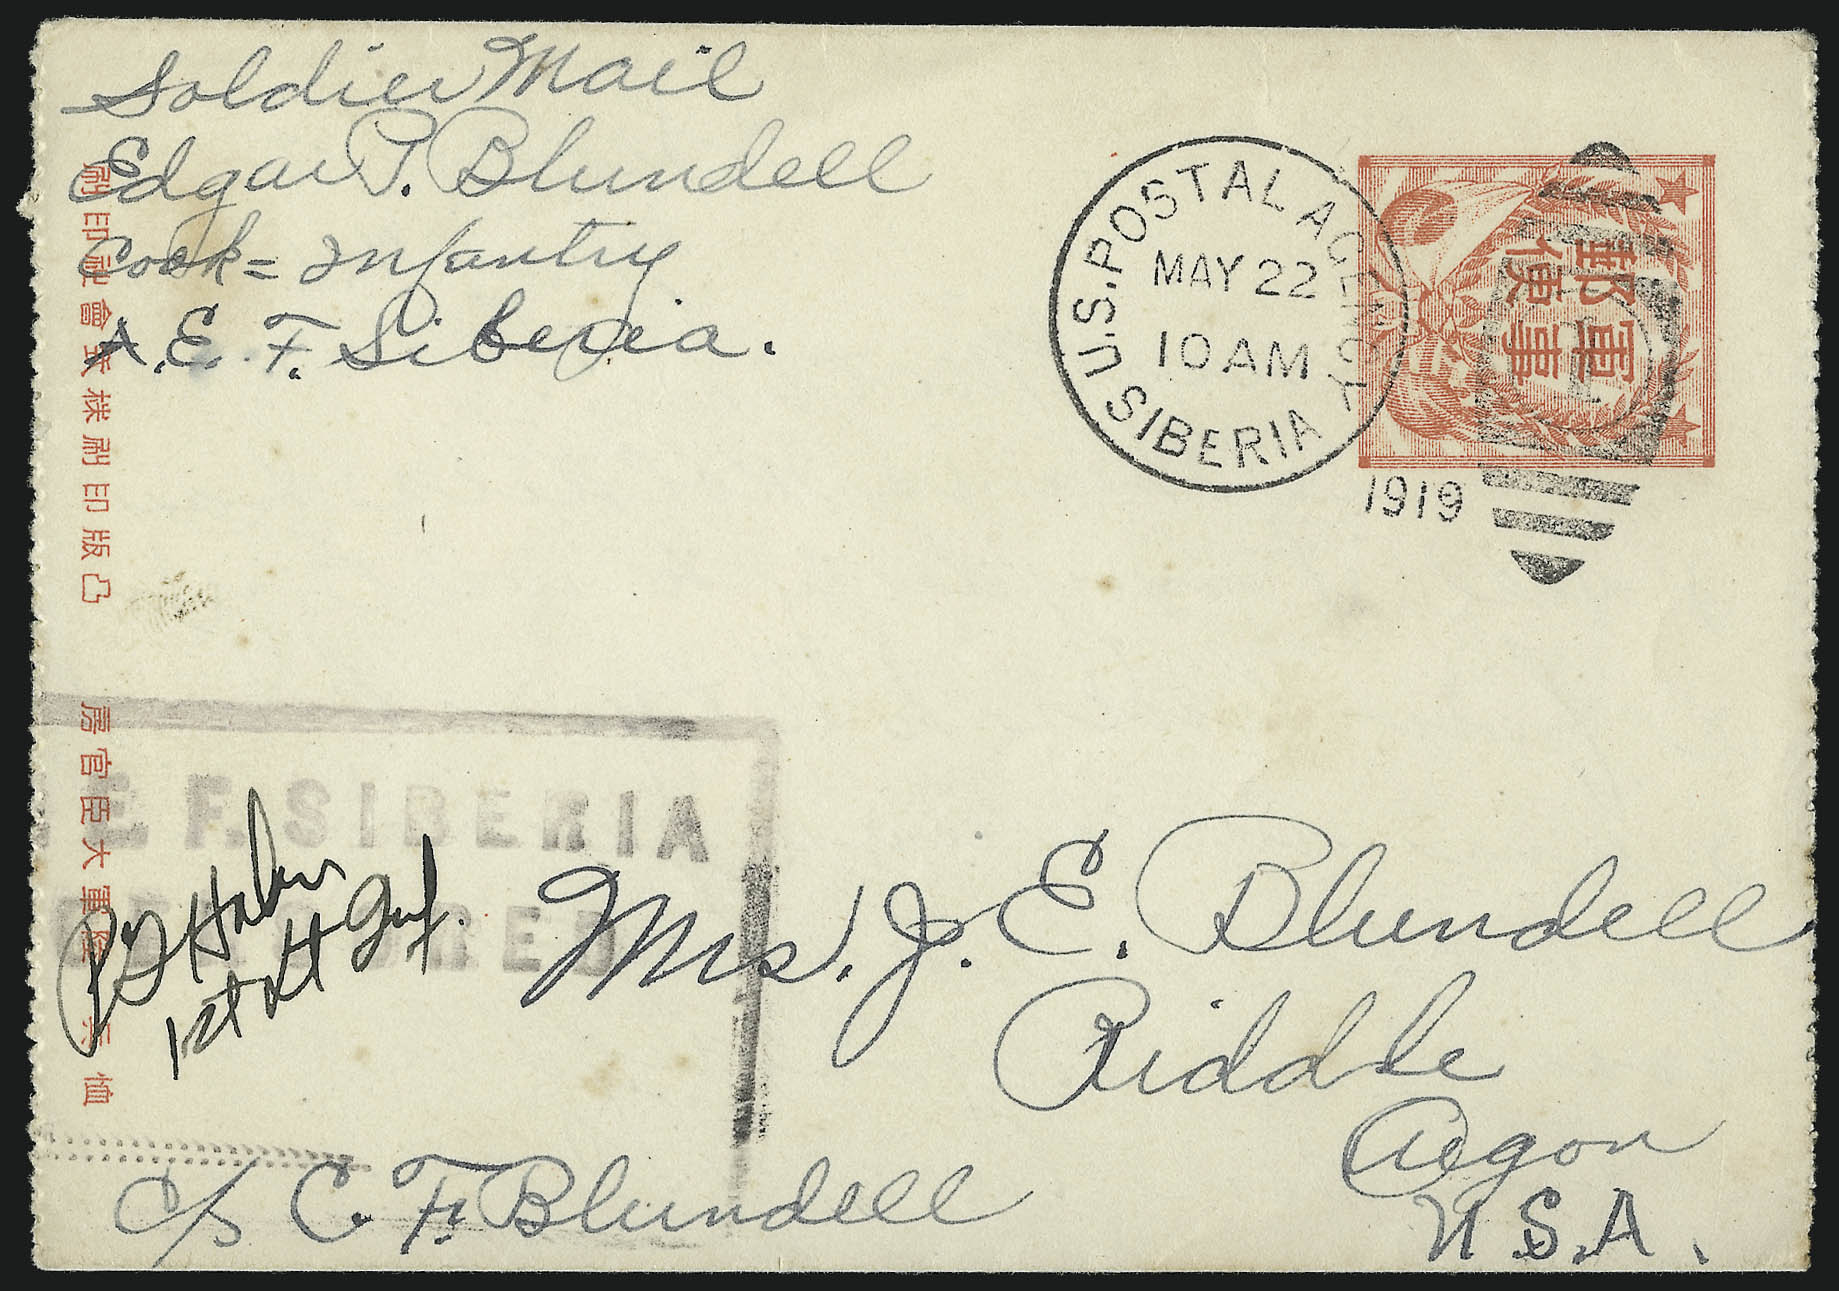 Soldier Mail
Edgar P. Blundell
Cook = Infantry
A. E. F. Siberia.
U.S. POSTAL AGENCY
MAY 22
10 AM
SIBERIA
1919
軍事
郵便
凸版印刷株式會社印刷
恤兵 陸軍大臣官房
E. F. SIBERIA
1st Lt Inf.
Mrs. J. E. Blundell
Riddle
Oregon
U.S.A.
c/o C. F. Blundell